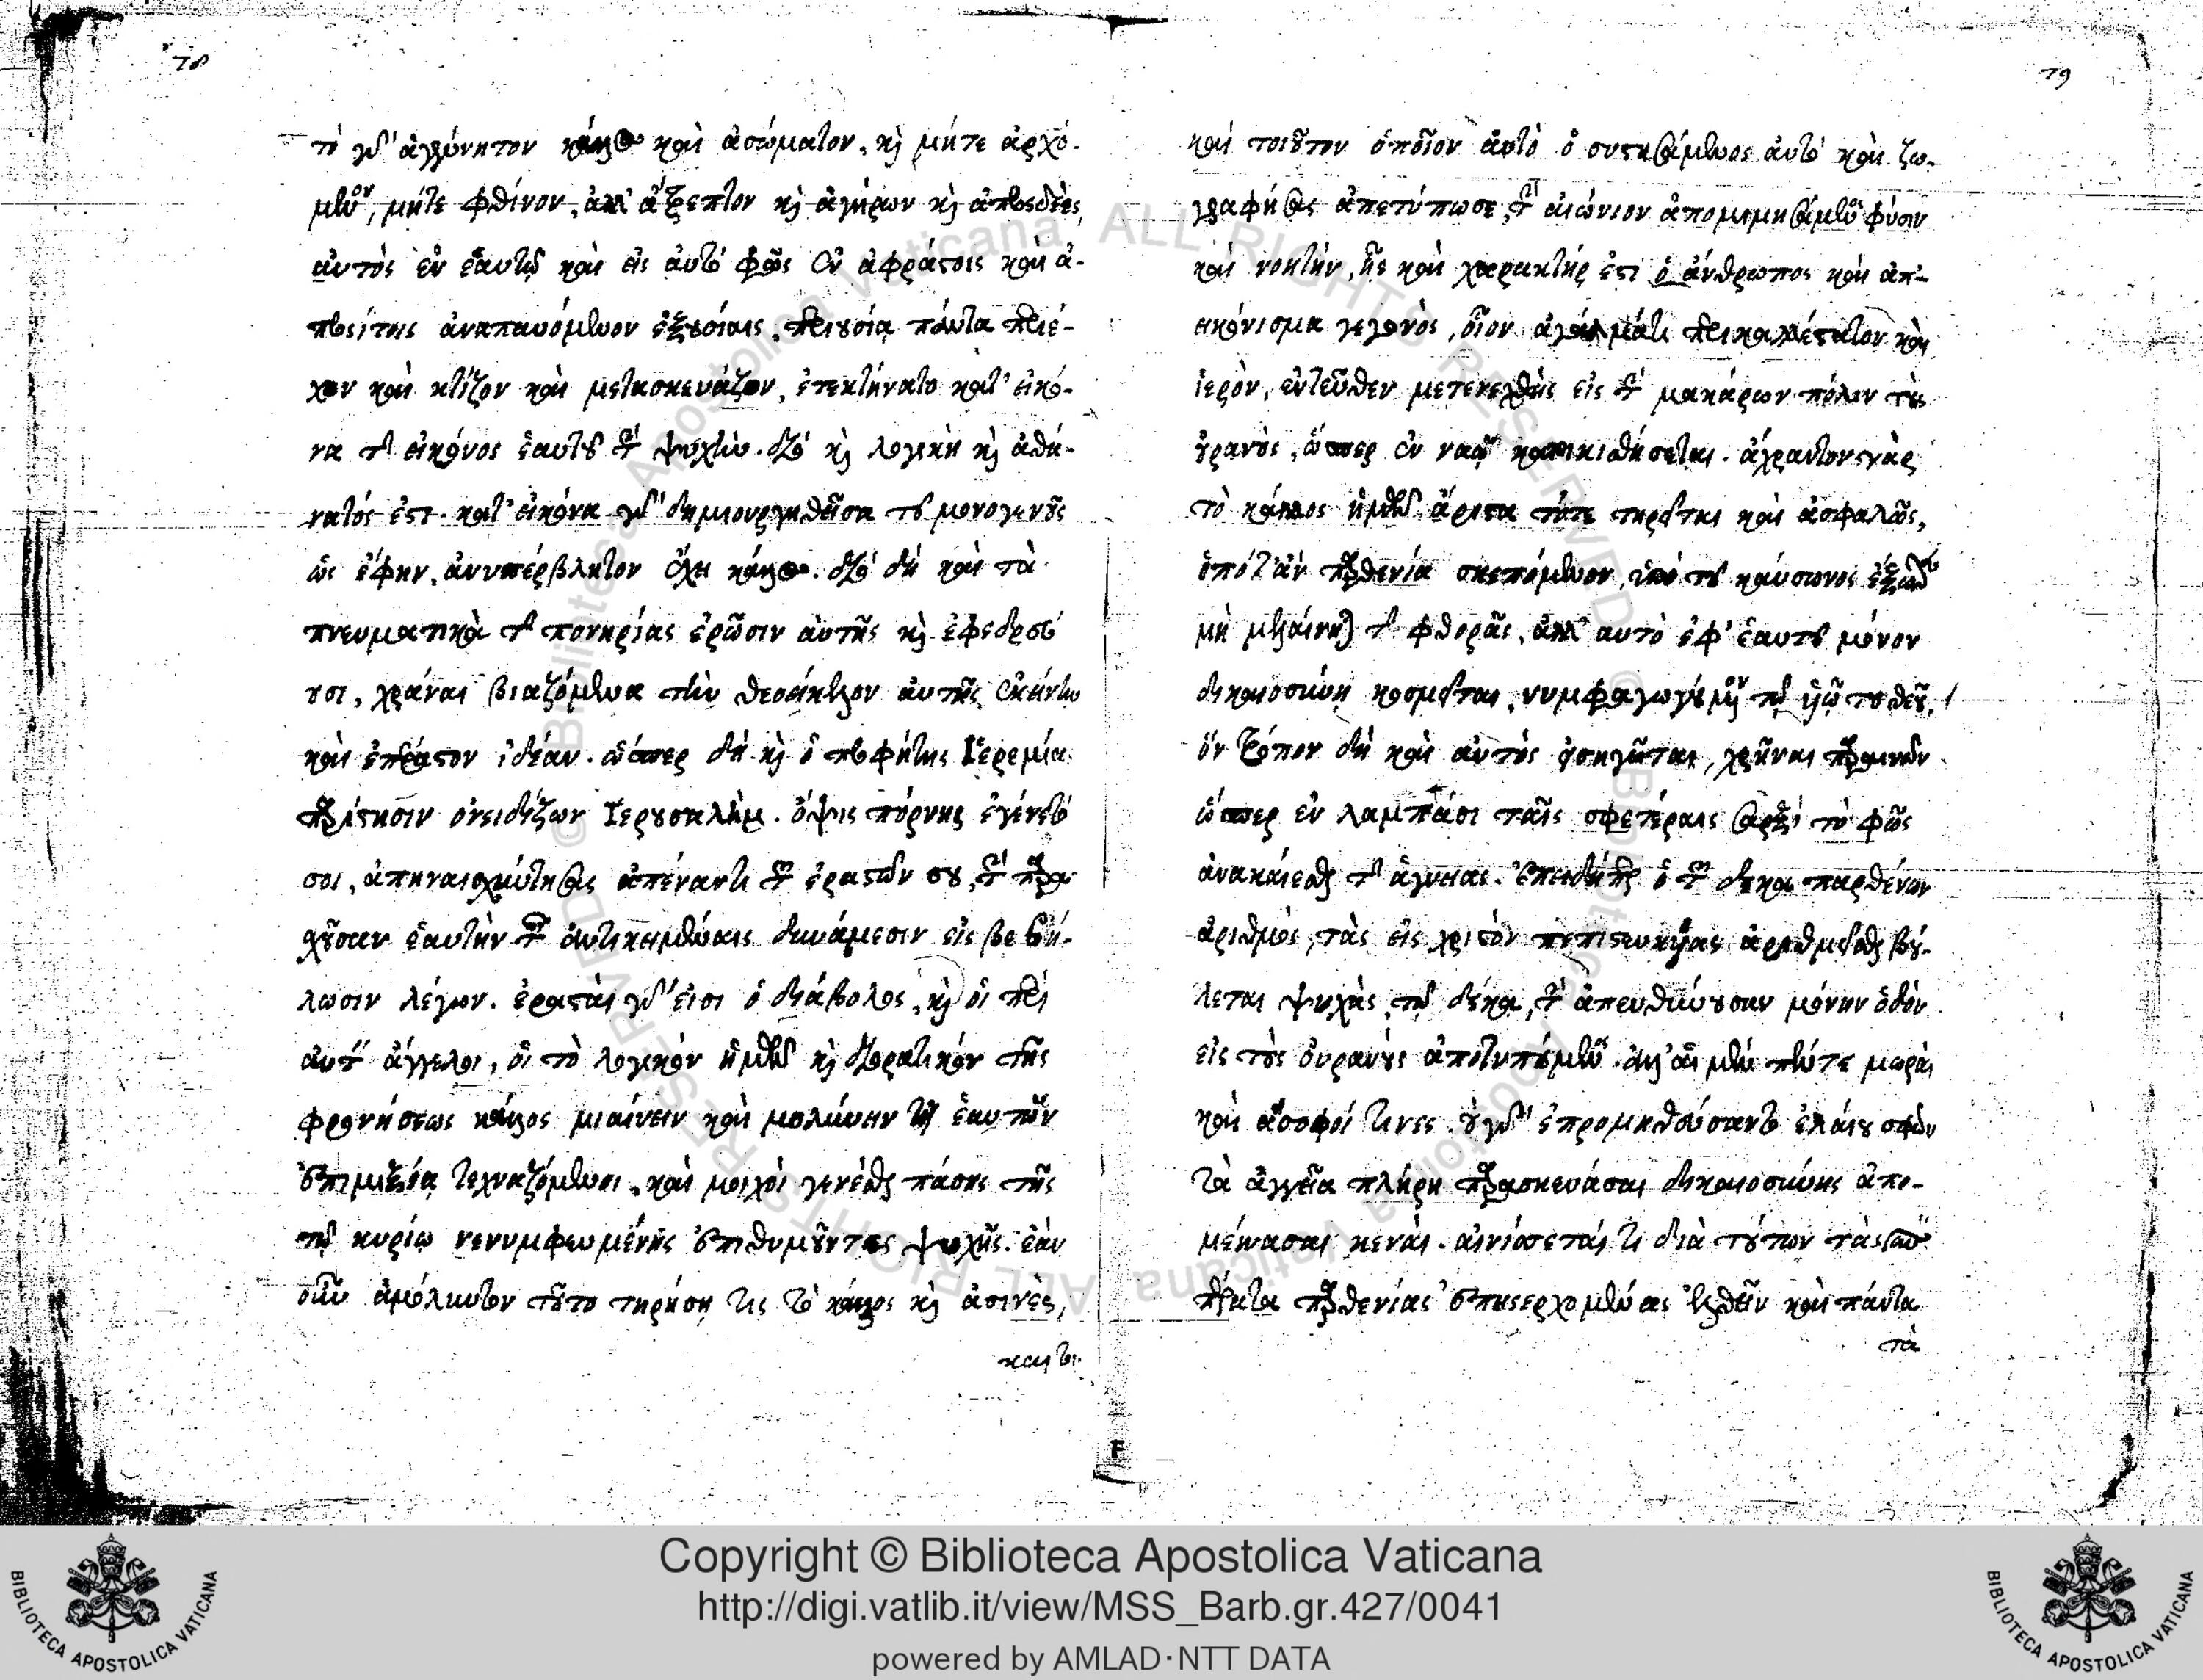 78
τὸ γὰρ ἀγέννητον κάλλος καὶ ἀσώματον, καὶ μήτε ἀρχό-
μενον, μήτε φθίνον, ἀλλ' ἄτρεπτον καὶ ἀγήρων καὶ ἀπροσδεὲς,
αὐτὸς ἐν ἑαυτῷ καὶ εἰς αὐτὸ φῶς ἐν ἀφράστοις καὶ ἀ-
προσίτοις ἀναπαυόμενον ἐξουσίαις, περιουσίᾳ πάντα περιέ-
χον καὶ κτίζον καὶ μετασκευάζον, ἐτεκτήνατο κατ' εἰκό-
να τῆς εἰκόνος ἑαυτοῦ τὴν ψυχήν. διὸ καὶ λογικὴ καὶ ἀθά-
νατός ἐστι. κατ' εἰκόνα γὰρ δημιουργηθεῖσα τοῦ μονογενοῦς
ὡς ἔφην, ἀνυπέρβλητον ἔχει κάλλος. διὸ δὴ καὶ τὰ
πνευματικὰ τῆς πονηρίας ἐρῶσιν αὐτῆς καὶ ἐφεδρεύ
ουσι, χρᾶναι βιαζόμενα τὴν θεοείκελον αὐτῆς ἐκείνην
καὶ ἐπέραστον ἰδέαν. ὥσπερ δὴ καὶ ὁ προφήτης Ἱερεμίας
παρίστησιν ὀνειδίζων Ἱερουσαλήμ. ὄψις πόρνης ἐγένετό
σοι, ἀπηναισχύντησας ἀπέναντι τῶν ἐραστῶν σου, τὴν παρα
χοῦσαν ἑαυτὴν ταῖς ἀντικειμέναις δυνάμεσιν εἰς βεβή-
λωσιν λέγων. ἐρασταὶ γὰρ εἰσι ὁ διάβολος, καὶ οἱ περὶ
αὐτὸν ἄγγελοι, οἱ τὸ λογικὸν ἡμῶν καὶ διορατικὸν τῆς
φρονήσεως κάλλος μιαίνειν καὶ μολύνειν τῇ ἑαυτῶν
ἐπιμιξίᾳ τεχναζόμενοι, καὶ μοιχοὶ γενέσθαι πάσης τῆς
τῷ κυρίῳ νενυμφευμένης ἐπιθυμοῦντες ψυχῆς. ἐὰν
οὖν ἀμόλυντον τοῦτο τηρήσῃ τις τὸ κάλλος καὶ ἀσινὲς,
καὶ τοι
79
καὶ τοιοῦτον ὁποῖον αὐτὸ ὁ συστησάμενος αὐτὸς καὶ ζω-
γραφήσας ἀπετύπωσε, τὴν αἰώνιον ἀπομιμησάμενον φύσιν
καὶ νοητὴν, ἧς καὶ χαρακτήρ ἐστι ὁ ἄνθρωπος καὶ ἀπ-
εικόνισμα γεγονὸς, οἷον ἀγάλματι περικαλλέστατον καὶ
ἱερὸν, ἐντεῦθεν μετενεχθεὶς εἰς τὴν μακάρων πόλιν τοὺς
οὐρανοὺς, ὥσπερ ἐν ναῷ κατοικισθήσεται. ἄχραντον γὰρ
τὸ κάλλος ἡμῶν ἄριστα τότε τηρεῖται καὶ ἀσφαλῶς,
ὁπόταν παρθενίᾳ σκεπόμενον, ὑπὸ τοῦ καύσωνος ἔξωθεν
μὴ μελαίνηται τῆς φθορᾶς, ἀλλ' αὐτὸ ἐφ' ἑαυτοῦ μόνον
δικαιοσύνῃ κοσμεῖται, νυμφαγωγούμενον τῷ υἱῷ τοῦ θεοῦ,
ὃν τρόπον δὴ καὶ αὐτὸς εἰσηγεῖται, χρῆναι παραινῶν
ὥσπερ ἐν λαμπάσι ταῖς σφετέραις σαρξὶ τὸ φῶς
ἀνακαίεσθαι τῆς ἁγνείας. ἐπειδήπερ ὁ τῶν δέκα παρθένων
ἀριθμὸς, τὰς εἰς χριστὸν πεπιστευκυίας ἀριθμεῖσθαι βού-
λεται ψυχὰς, τῷ δέκα, τὴν ἀπευθύνουσαν μόνην ὁδὸν
εἰς τοὺς οὐρανοὺς ἀποτυπούμενον. ἀλλ' αἱ μὲν πέντε μωραὶ
καὶ ἄσοφοί τινες. οὐ γὰρ ἐπρομηθεύσαντο ἐλαίου σφῶν
τὰ ἀγγεῖα πλήρη παρασκευάσαι δικαιοσύνης ἀπο-
μείνασαι κεναί. αἰνίσσεταί τι διὰ τούτων τὰς
πέρατα παρθενίας ἐπεισερχομένας ἐλθεῖν καὶ πάντα
τὰ
F
Copyright © Biblioteca Apostolica Vaticana
http://digi.vatlib.it/view/MSS_Barb.gr.427/0041
powered by AMLAD·NTT DATA
BIBLIOTECA APOSTOLICA VATICANA
BIBLIOTECA APOSTOLICA VATICANA